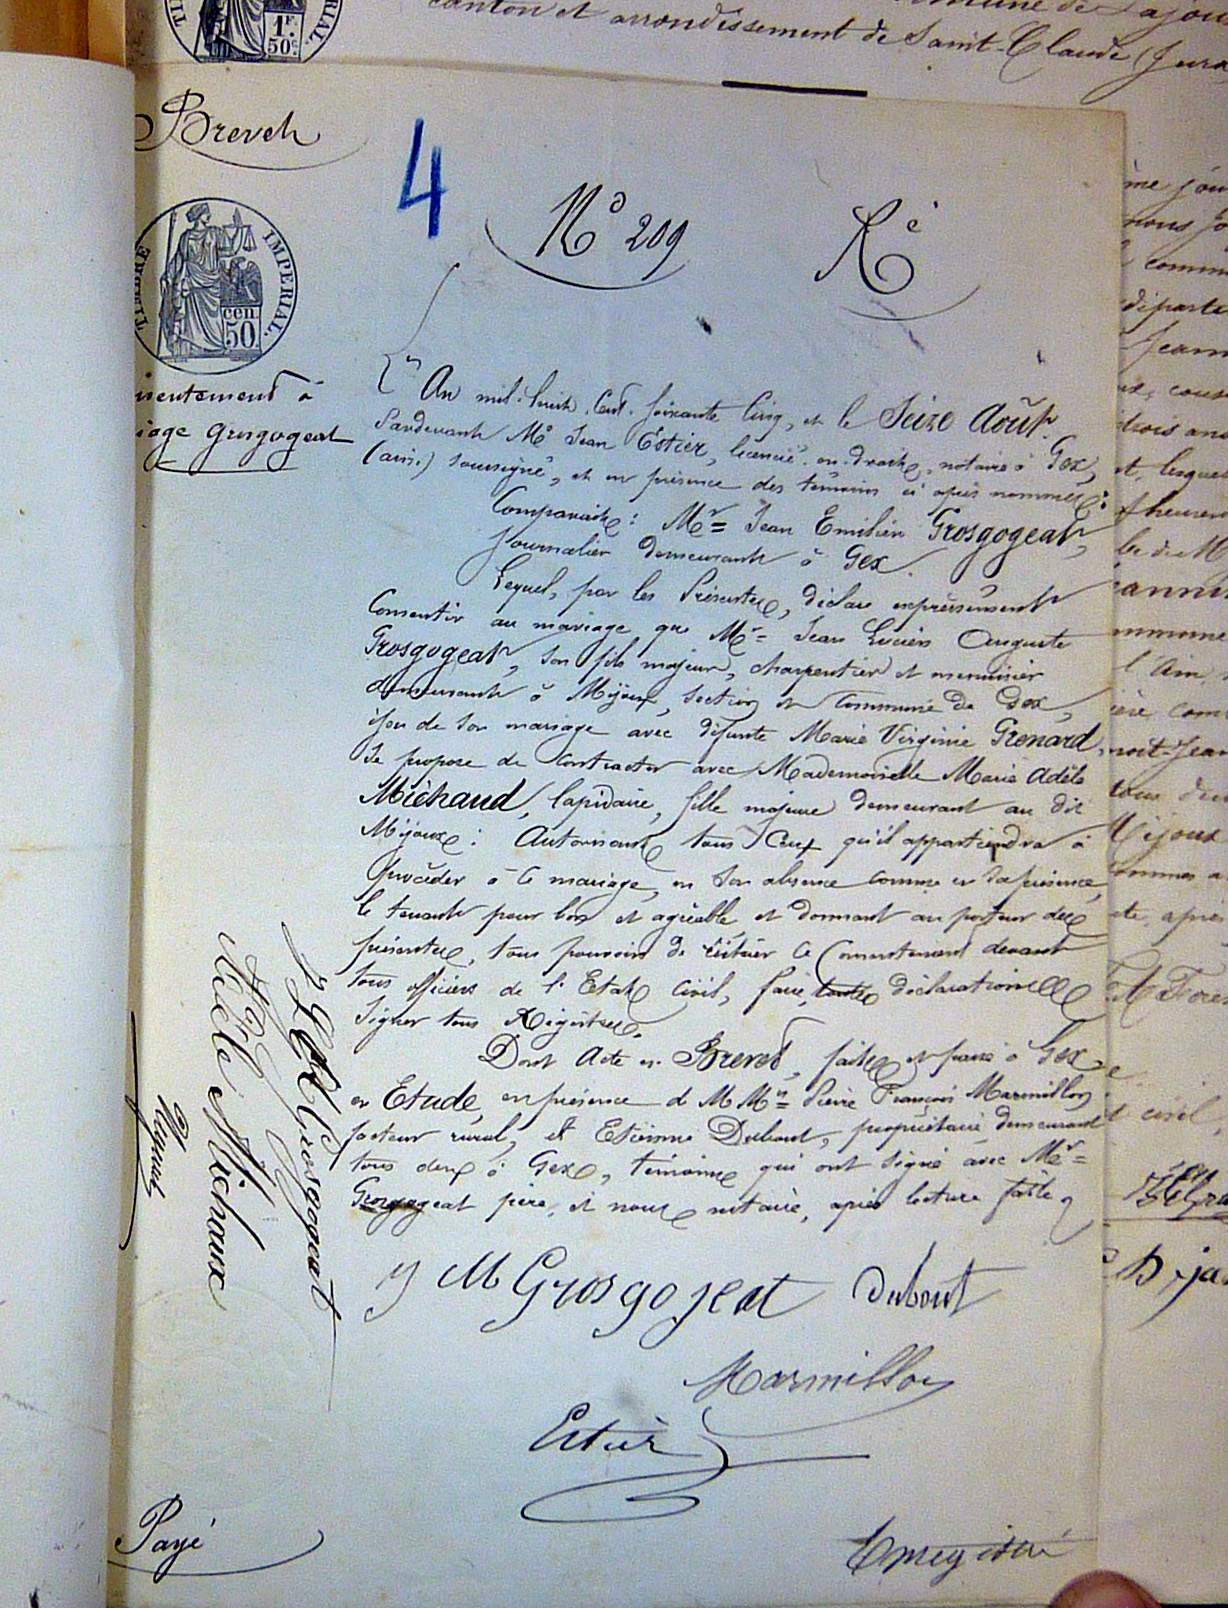 1F.
50c.
IMPERIAL.
canton et arrondissement de Saint-Claude (Jura
Brevet
4
N° 209
Ré
TIMBRE IMPERIAL.
cen.
50.
sentement à
iage Grosgogeat
L'An mil huit Cent Soixante Cinq, et le Seize Août.
Pardevant Me Jean Estier, licencié en droit, notaire à Gex,
(ain.) soussigné, et en présence des témoins ci après nommés:
Comparait: Mr= Jean Emilien Grosgogeat,
journalier demeurant à Gex.
Lequel, par les Présentes, déclare expressément
Consentir au mariage que Mr= Jean Lucien Auguste
Grosgogeat, son fils majeur, charpentier et menuisier
demeurant à Mijoux, section et Commune de Gex,
issu de son mariage avec défunte Marie Virginie Grenard,
Se propose de Contracter avec Mademoiselle Marie Adèle
Michaud, lapidaire, fille majeure demeurant au dit
Mijoux: Autorisant tous Ceux qu'il appartiendra à
procéder à ce mariage, en son absence comme en sa présence,
le tenant pour bon et agréable et donnant au porteur des
présentes, tous pouvoirs de réitérer ce Consentement devant
tous officiers de l'Etat Civil, faire toutes déclarations
Signer tous Registres.
Dont Acte en Brevet, fait et passé à Gex
en Etude, en présence de MMrs= Pierre François Marmillon
facteur rural, et Etienne Dubout, propriétaire demeurant
tous deux à Gex, témoins qui ont signé avec Mr=
Grosgogeat père, et nous notaire, après lecture faite
M Grosgogeat Dubout
Marmillon
Estier
Grosgogeat
Adèle Michaux
Payé
Enregistré